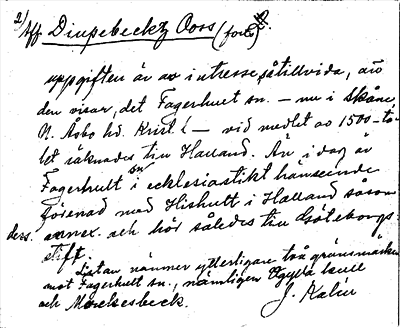 2/ Aff Diupebeckz Ooss (forts.) 2.
uppgiften är av intresse såtillvida, att
den visar, det Fagerhult sn. — nu i Skåne,
N. Åsbo hd. Krist. l — vid medlet av 1500-ta-
let räknades till Halland. Än i dag är
Fagerhult sn i ecklesiastikt hänseende
förenad med Hishult i Halland såsom
dess annex och hör således till Göteborgs
stift.
Listan nämner ytterligare två gränsmärken
mot Fagerhult sn., nämligen Ögylla kull
och Morckesbeck. J. Kalén